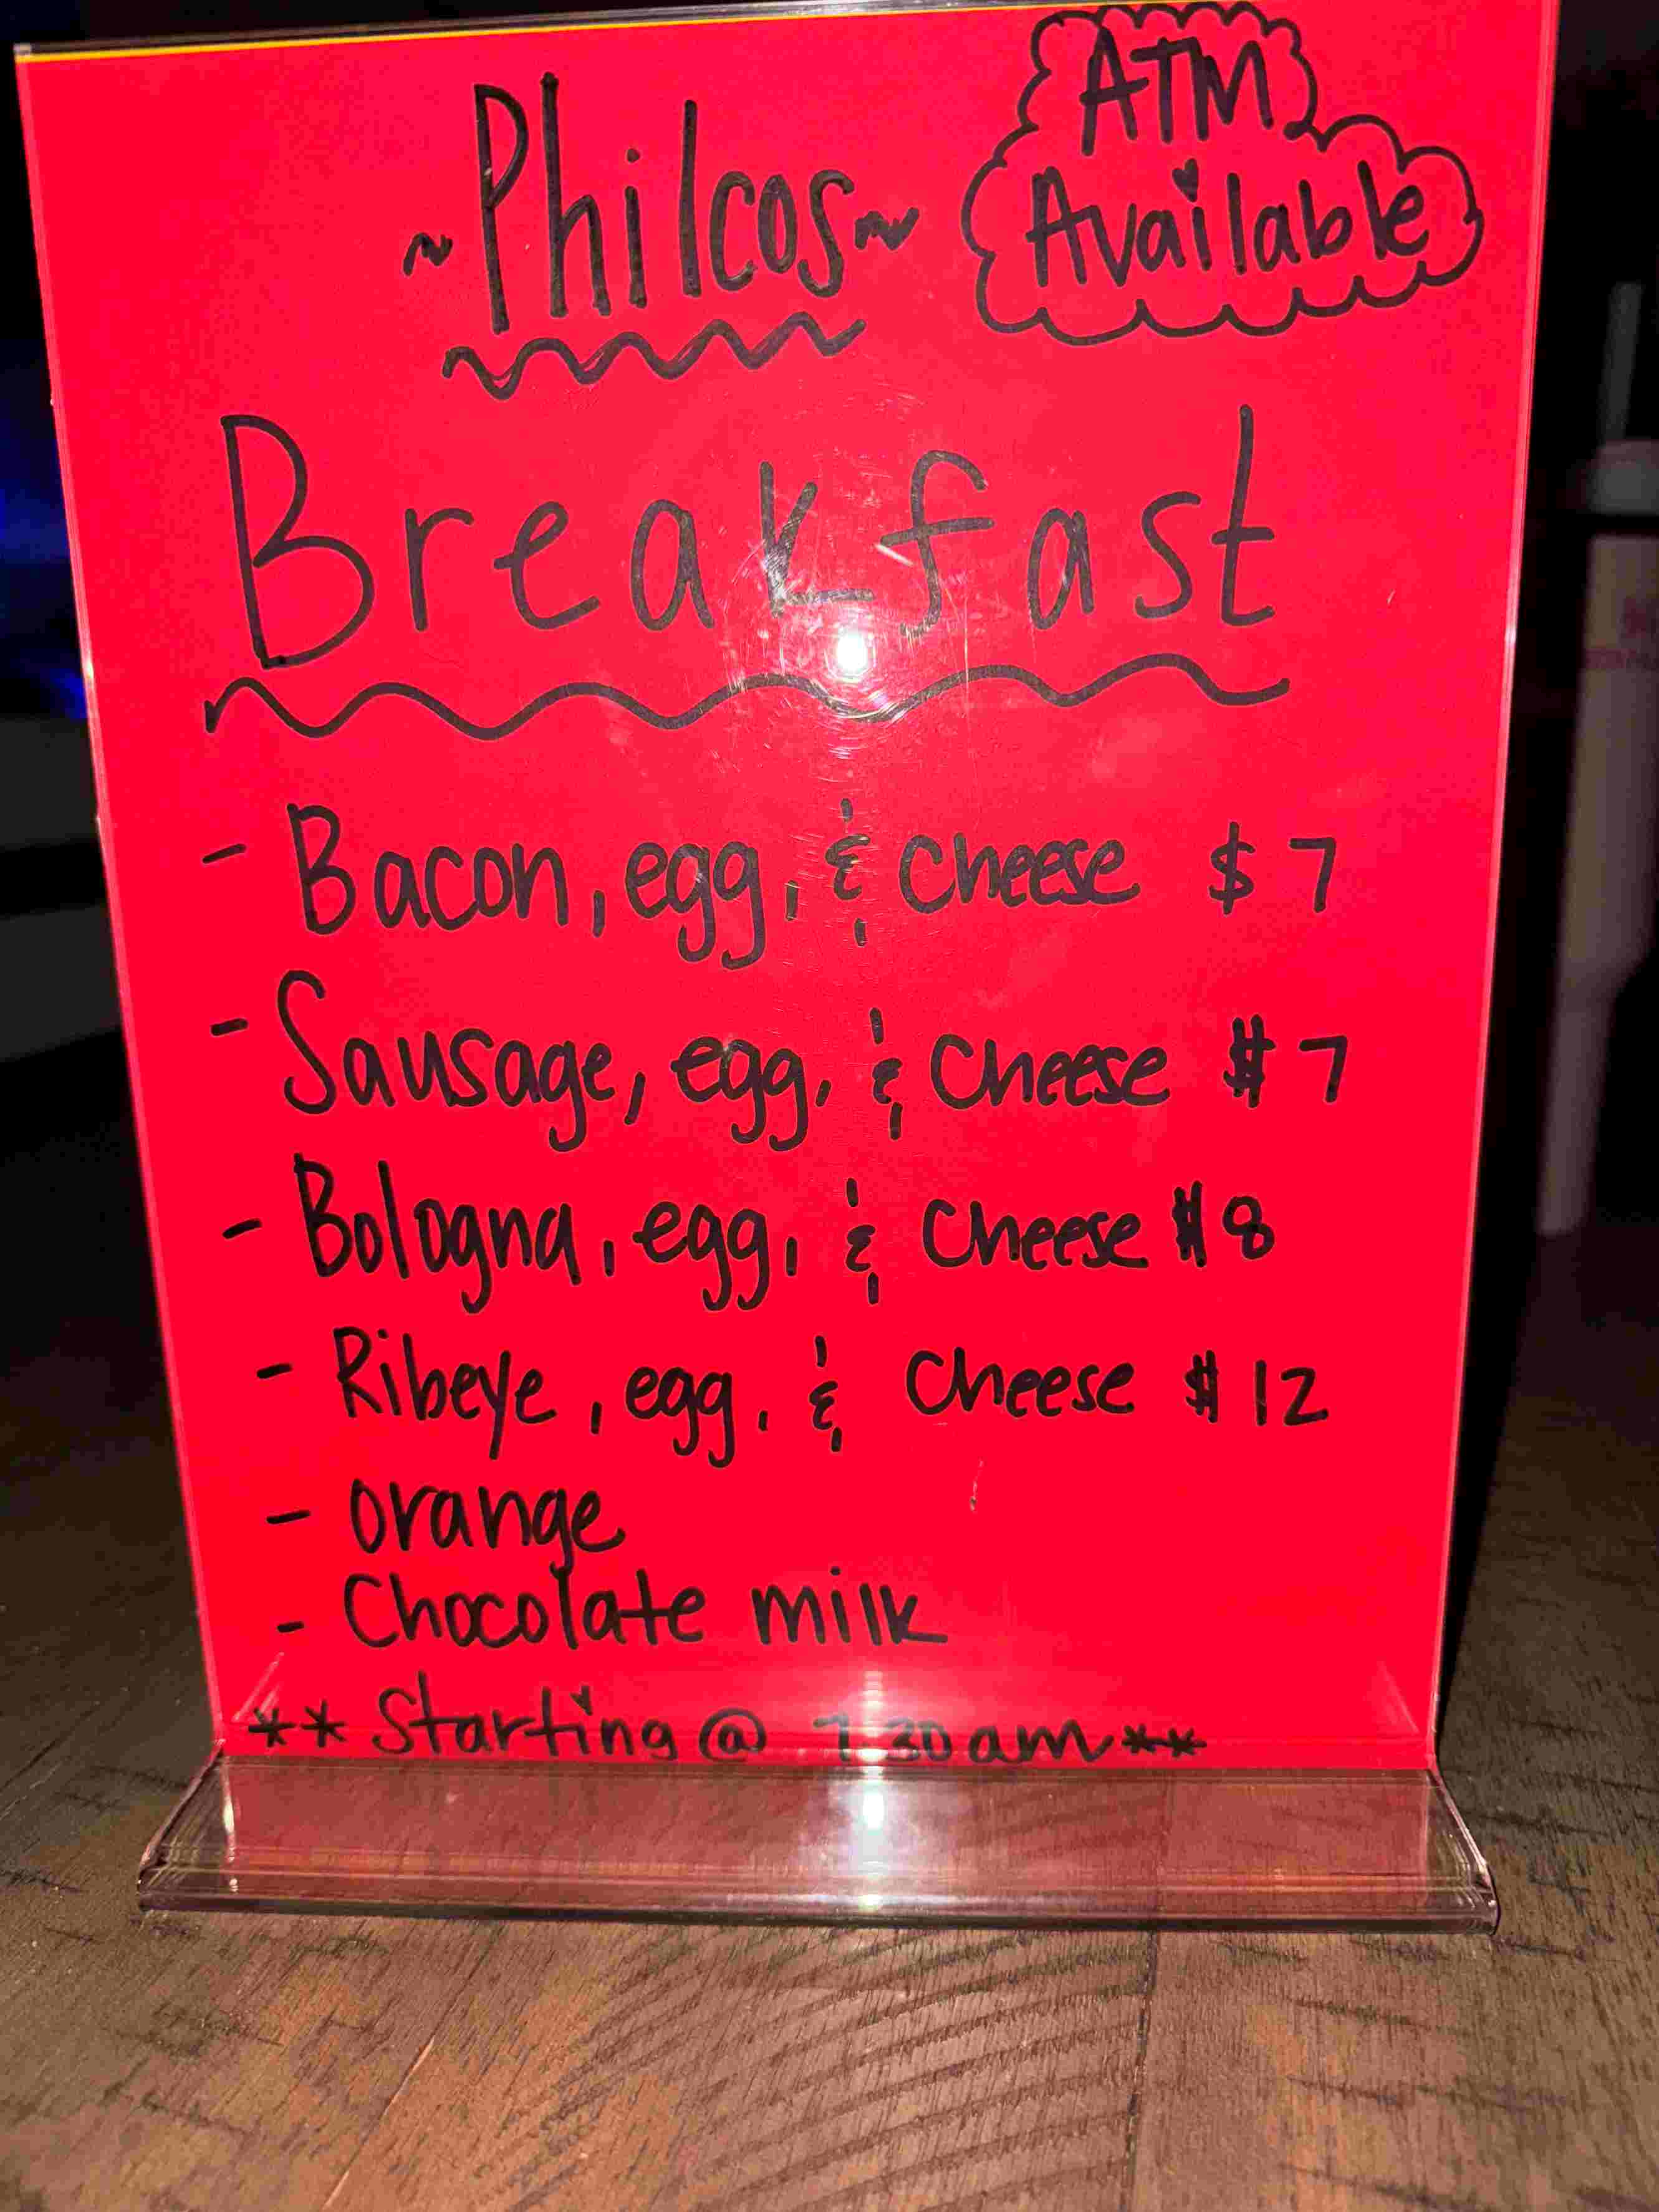 ~Philcos~
ATM
Available
Breakfast
- Bacon, egg, & Cheese $7
- Sausage, egg, & Cheese $7
- Bologna, egg, & Cheese $8
- Ribeye, egg, & Cheese $12
- orange
- Chocolate milk
** Starting @ 7:30am**